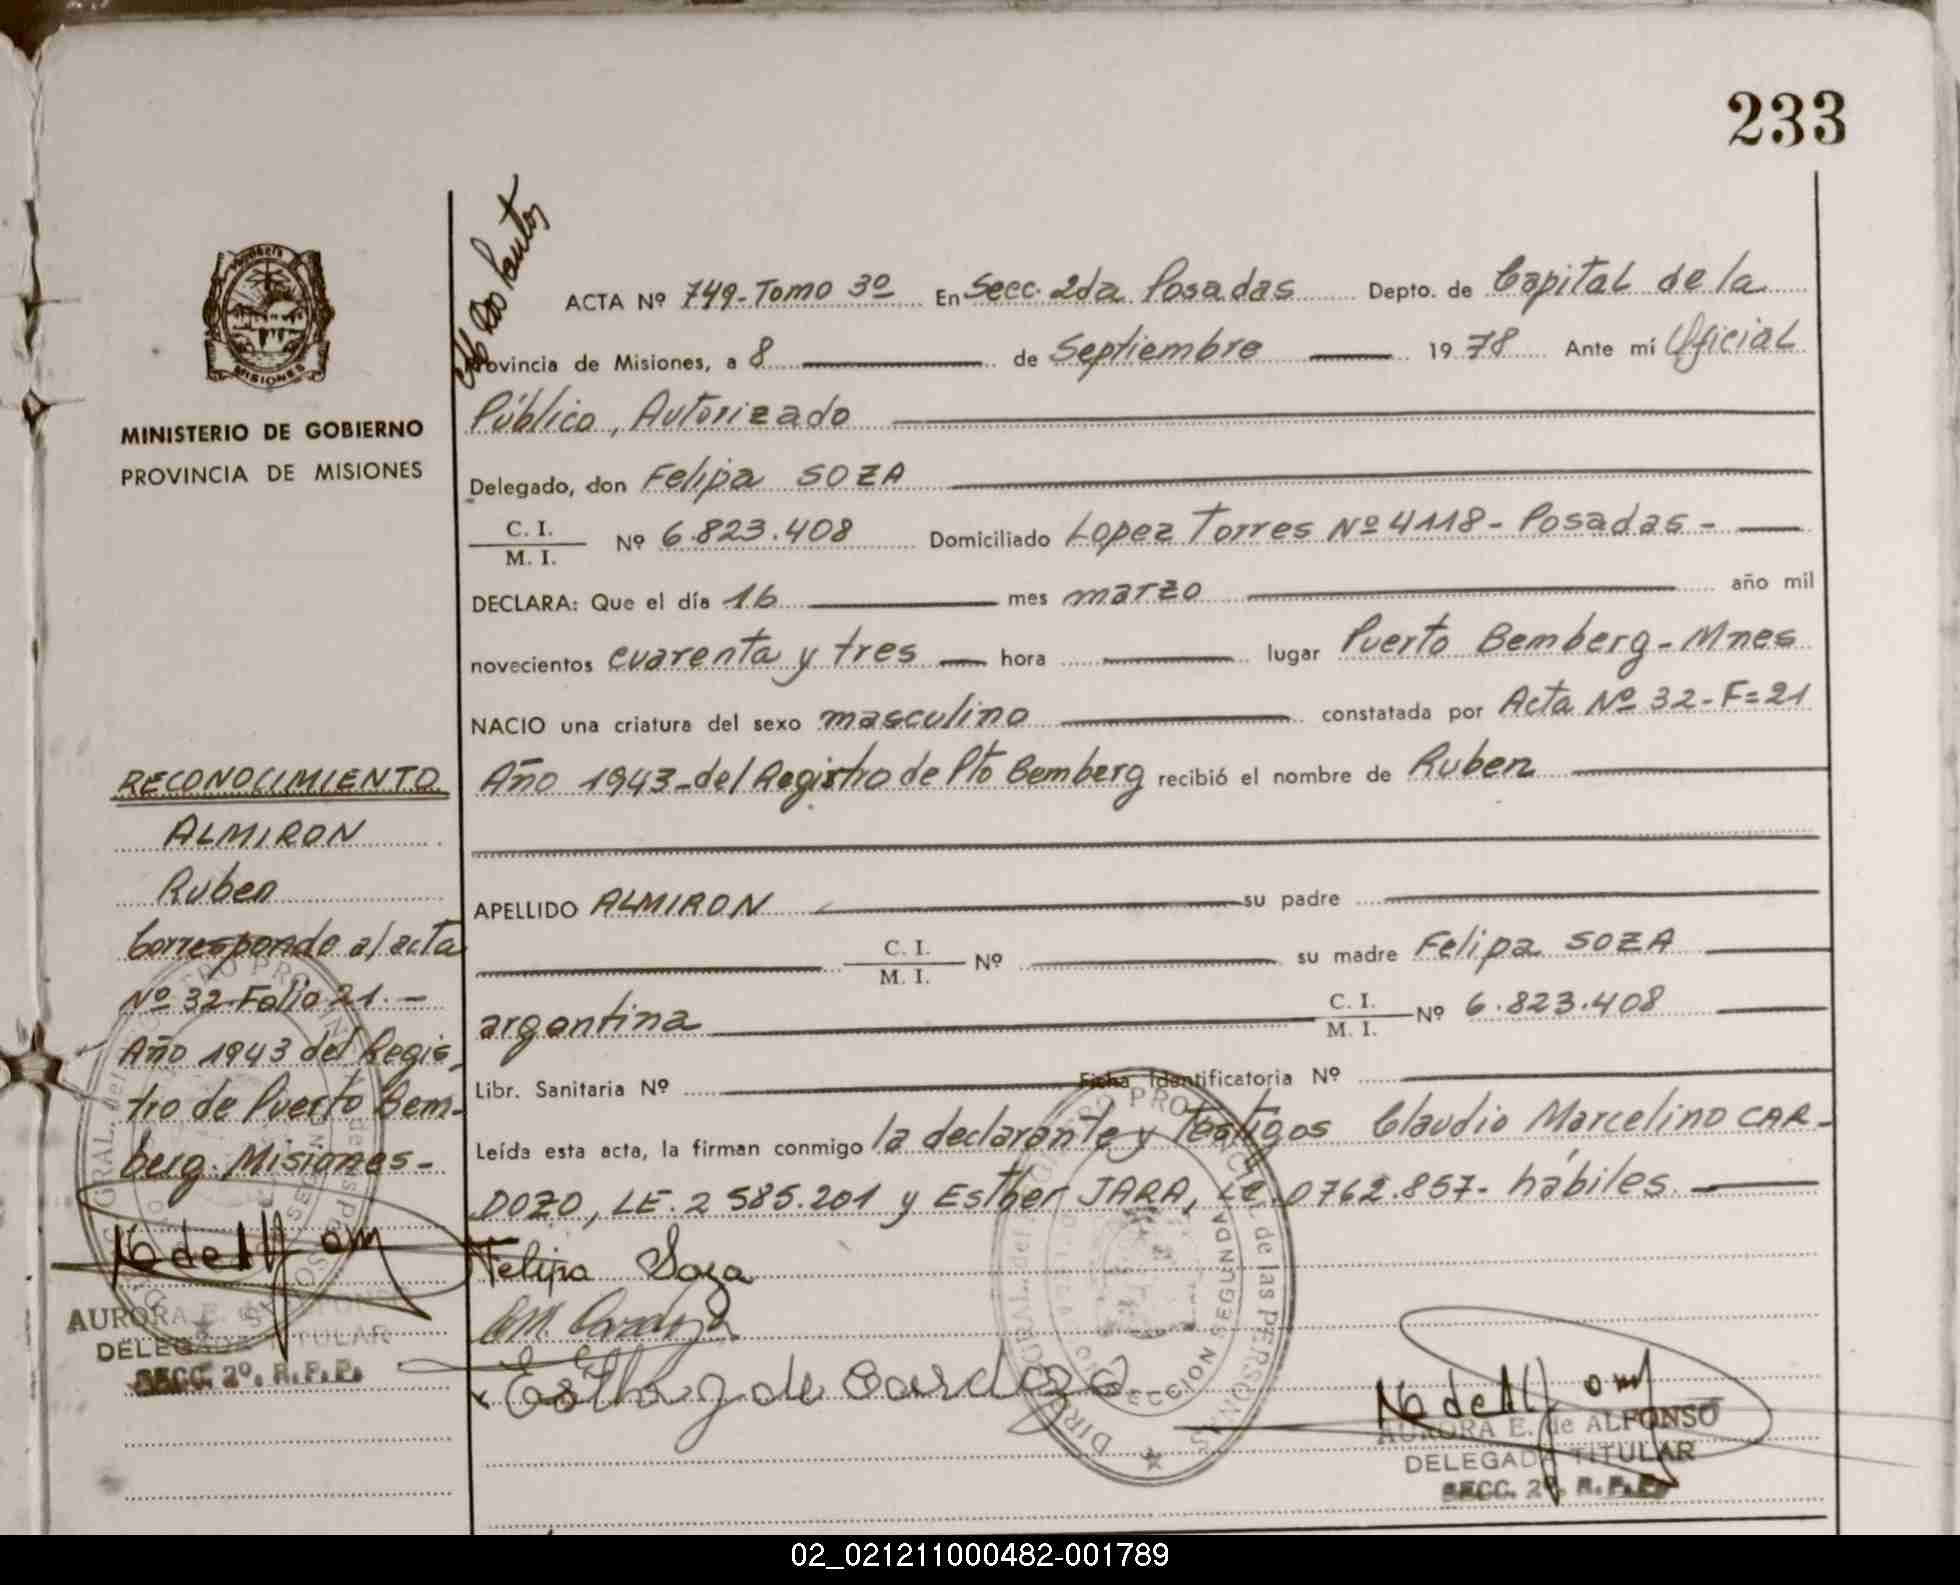 233
MISIONES
MINISTERIO DE GOBIERNO
PROVINCIA DE MISIONES
RECONOCIMIENTO
ALMIRON
Ruben
Corresponde al acta
Nº 32-Folio 21.-
Año 1943 del Regis-
tro de Puerto Bem-
berg. Misiones-
AURORA E. de ALFONSO
DELEGADA TITULAR
SECC. 2º. R.P.P.
Dos Santos
ACTA Nº 749-Tomo 3º En Secc. 2da Posadas Depto. de Capital de la
Provincia de Misiones, a 8 de Septiembre 1978 Ante mí Oficial
Público, Autorizado
Delegado, don Felipa SOZA
C. I. / M. I. Nº 6.823.408 Domiciliado Lopez Torres Nº 4118- Posadas-
DECLARA: Que el día 16 mes marzo año mil
novecientos cuarenta y tres hora lugar Puerto Bemberg-Mnes
NACIO una criatura del sexo masculino constatada por Acta Nº 32-F=21
Año 1943-del Registro de Pto Bemberg recibió el nombre de Ruben
APELLIDO ALMIRON su padre
C. I. / M. I. Nº su madre Felipa SOZA
argentina C. I. / M. I. Nº 6.823.408
Libr. Sanitaria Nº Ficha Identificatoria Nº
Leída esta acta, la firman conmigo la declarante y testigos Claudio Marcelino CAR-
DOZO, LE. 2585.201 y Esther JARA, LC. 0762.857- hábiles.
Felipa Soza
CM. Cardozo
Esther J de Cardozo
DIRECCION GRAL. del REGISTRO PROVINCIAL de las PERSONAS
SECCION SEGUNDA
AURORA E. de ALFONSO
DELEGADA TITULAR
SECC. 2º. R.P.P.
02_021211000482-001789